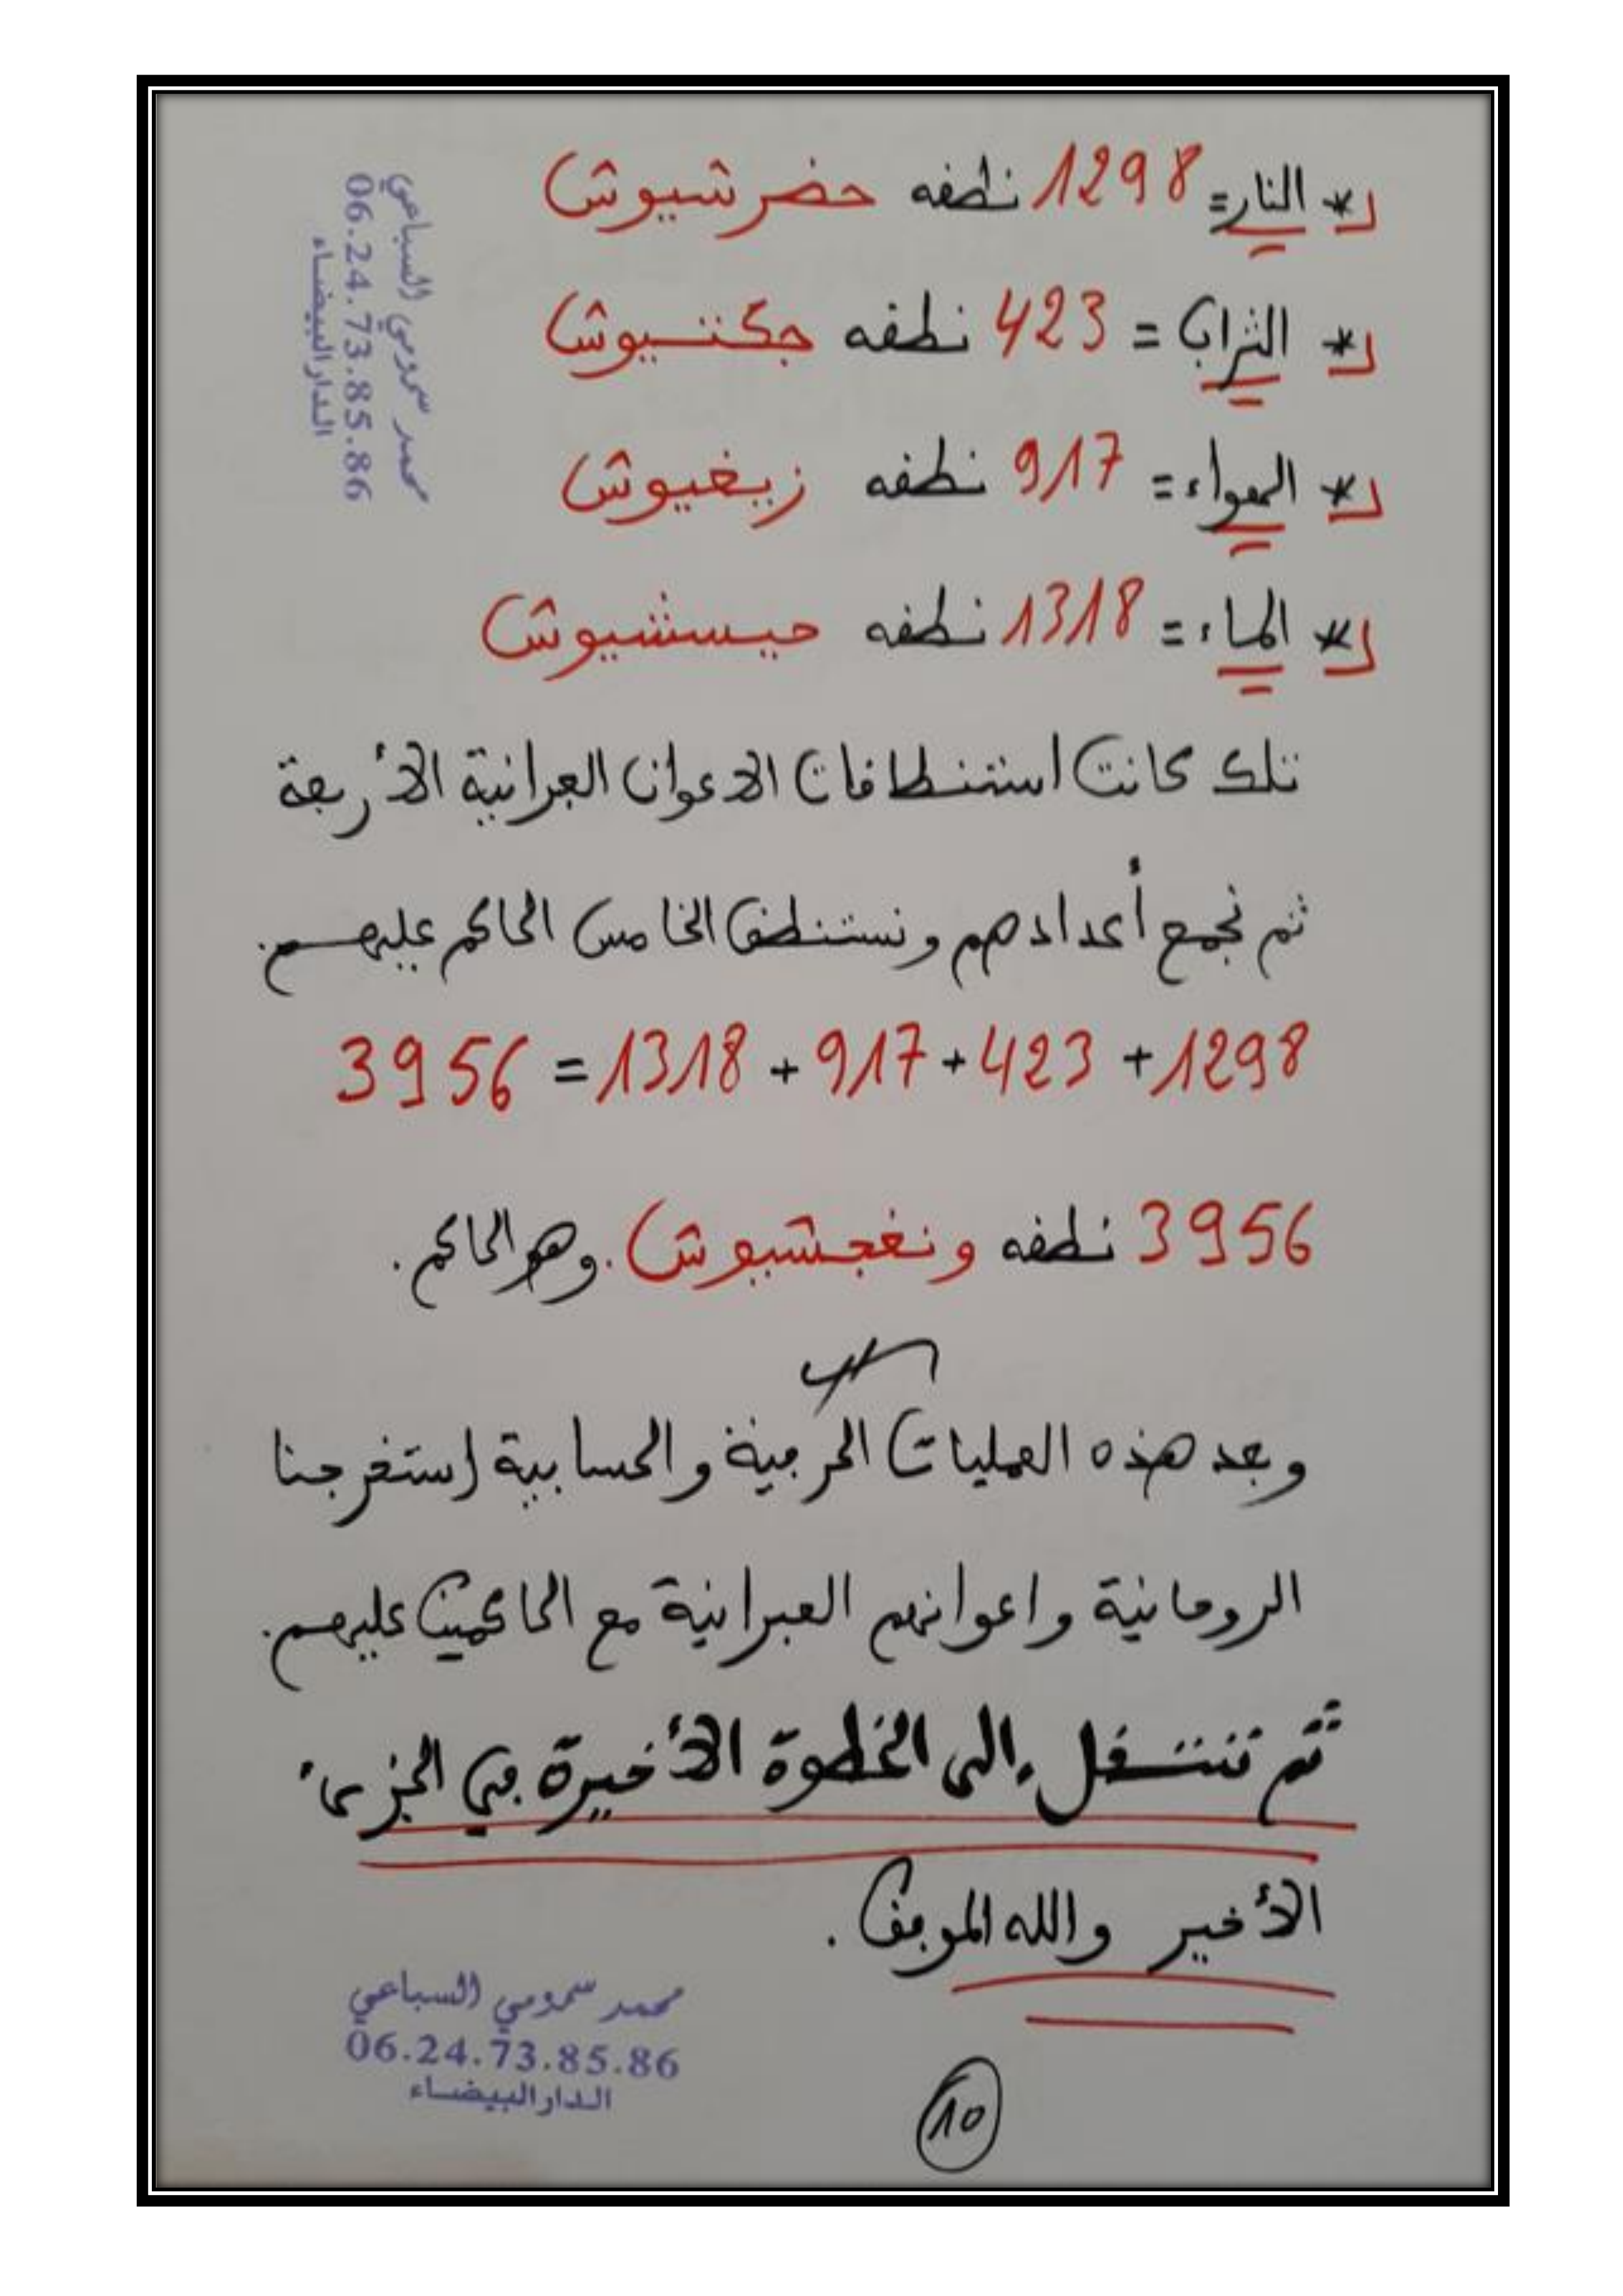 * النار = 1298 نطقه حضرشيوش
* التراب = 423 نطقه جكتيوش
* الهواء = 917 نطقه زيغيوش
* الماء = 1318 نطقه حيسشيوش
تلك كانت استنطاقات الاعوان العبرانية الأربعة
ثم نجمع أعدادهم ونستنطق الخامس الحاكم عليهم.
1298 + 423 + 917 + 1318 = 3956
3956 نطقه ونغجشيوش. وهو الحاكم.
وبعد هذه العمليات الحرفية والحسابية إستخرجنا
الروحانية واعوانهم العبرانية مع الحاكمين عليهم.
ثم ننتقل إلى الخطوة الأخيرة في الجزىء
الأخير والله الموفق.
10
محمد سمومي السباعي
06.24.73.85.86
الدار البيضاء
محمد سمومي السباعي
06.24.73.85.86
الدار البيضاء